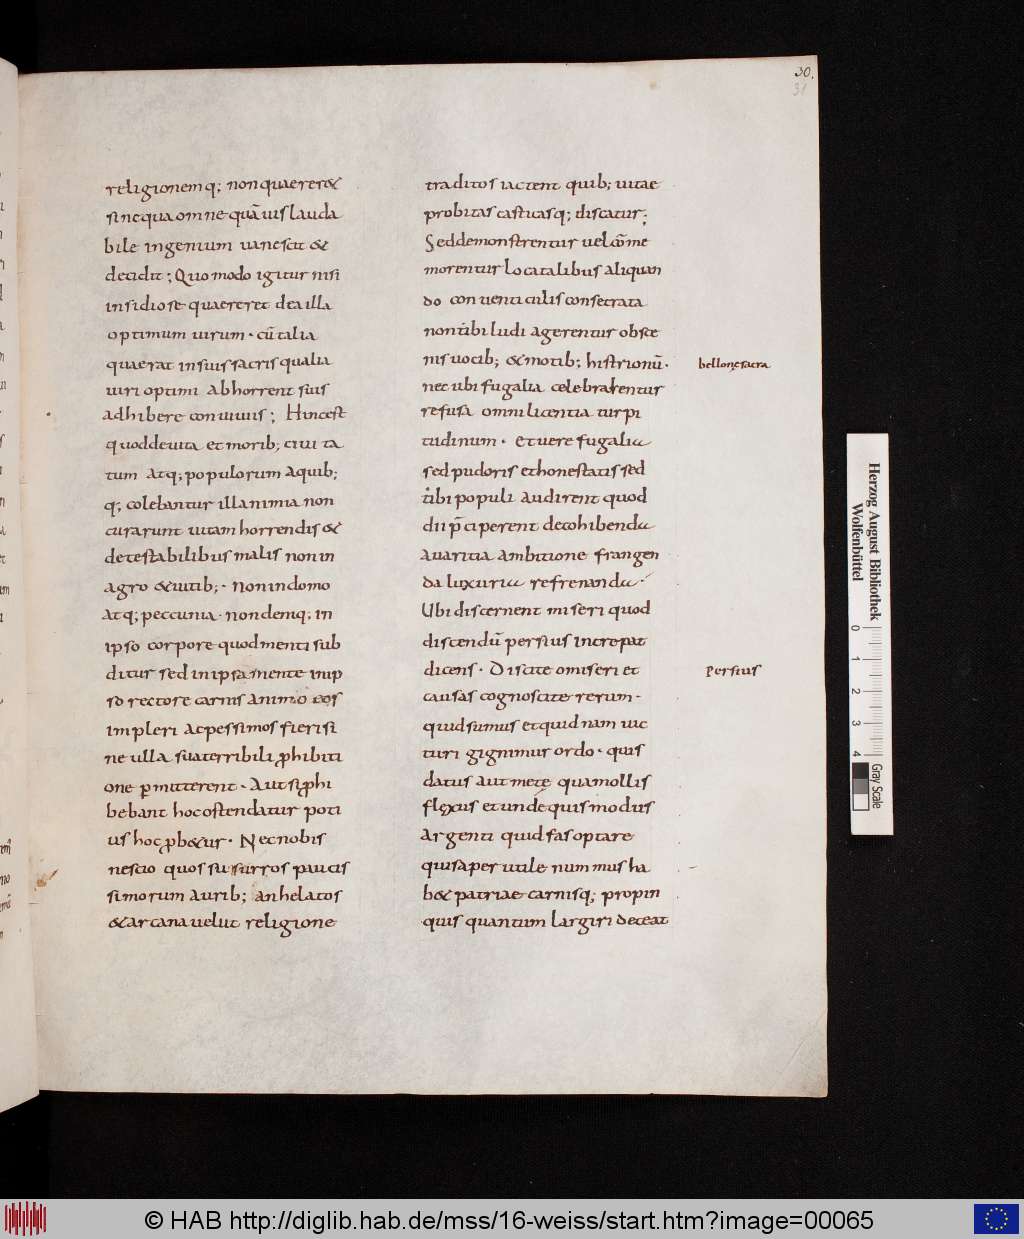 30.
31
religionemq; non quaereret
sine qua omne quāuis lauda
bile ingenium uanescit &
decidit; Quo modo igitur nisi
insidiose quaereret dea illa
optimum uirum · cū talia
quaerat in suis sacris qualia
uiri optimi abhorrent suis
adhibere conuiuiis; Hinc est
quod de uita et morib; ciuita
tum atq; populorum a quib;
q; colebantur illa nimia non
curarunt ut tam horrendis &
detestabilibus malis non in
agro & uitib; · non in domo
atq; peccunia · non deniq; in
ipso corpore quod menti sub
ditur sed in ipsa mente in ip
so rectore carnis animo eos
impleri ac pessimos fieri si
ne ulla sua terribili ꝓhibiti
one ꝑmitterent · Aut si ꝓhi
bebant hoc ostendatur poti
us hoc ꝓb&ur · Nec nobis
nescio quos susurros paucis
simorum aurib; anhelatos
& arcana uelut religione
traditos iactent quib; uitae
probitas castitasq; discatur;
Sed demonstrentur uel cōme
morentur loca talibus aliquan
do conuenticulis consecrata
non ubi ludi agerentur obsce
nis uocib; & motib; histrionū ·
nec ubi fugalia celebrarentur
refusa omni licentia turpi
tudinum · et uere fugalia
sed pudoris et honestatis sed
ubi populi audirent quod
dii p̄ciperent de cohibenda
auaritia ambitione frangen
da luxuria refrenanda ·
Ubi discernent miseri quod
discendū persius increpat
dicens · Discite o miseri et
causas cognoscite rerum ·
quid sumus et quid nam uic
turi gignimur ordo · quis
datus aut mete qua mollis
flexus et unde quis modus
argenti quid fas optare
quis aper utile nummus ha
b& patriae carnisq; propin
quis quantum largiri deceat
bellone sacra
persius
Herzog August Bibliothek
Wolfenbüttel
0 1 2 3 4
Gray Scale
© HAB http://diglib.hab.de/mss/16-weiss/start.htm?image=00065